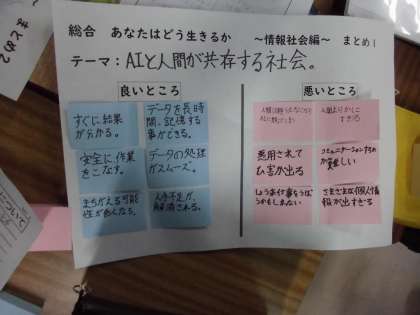 総合 あなたはどう生きるか ～情報社会編～ まとめ1
テーマ：AIと人間が共存する社会。
良いところ
悪いところ
すぐに結果
が分かる。
データを長時
間、記憶する
事ができる。
安全に作業
をこなす。
データの処理
がスムーズ。
まちがえる可能
性が低くなる。
人手不足が
解消される。
人間よりかしこ
すぎる
悪用されて
ひ害が出る
コミュニケーションするの
が難しい
しょう来仕事をうば
うかもしれない
さまざまな個人情
報が出すぎる
まとめ2